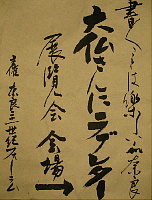 書くことは楽しい奈良
大仏さんにラブレター
展覧会会場→
奈良二一世紀フォーラム